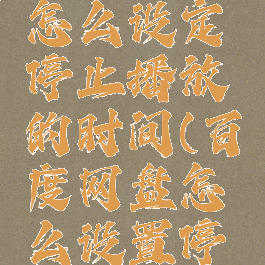 怎么设定
停止播放
的时间(百
度网盘怎
么设置停